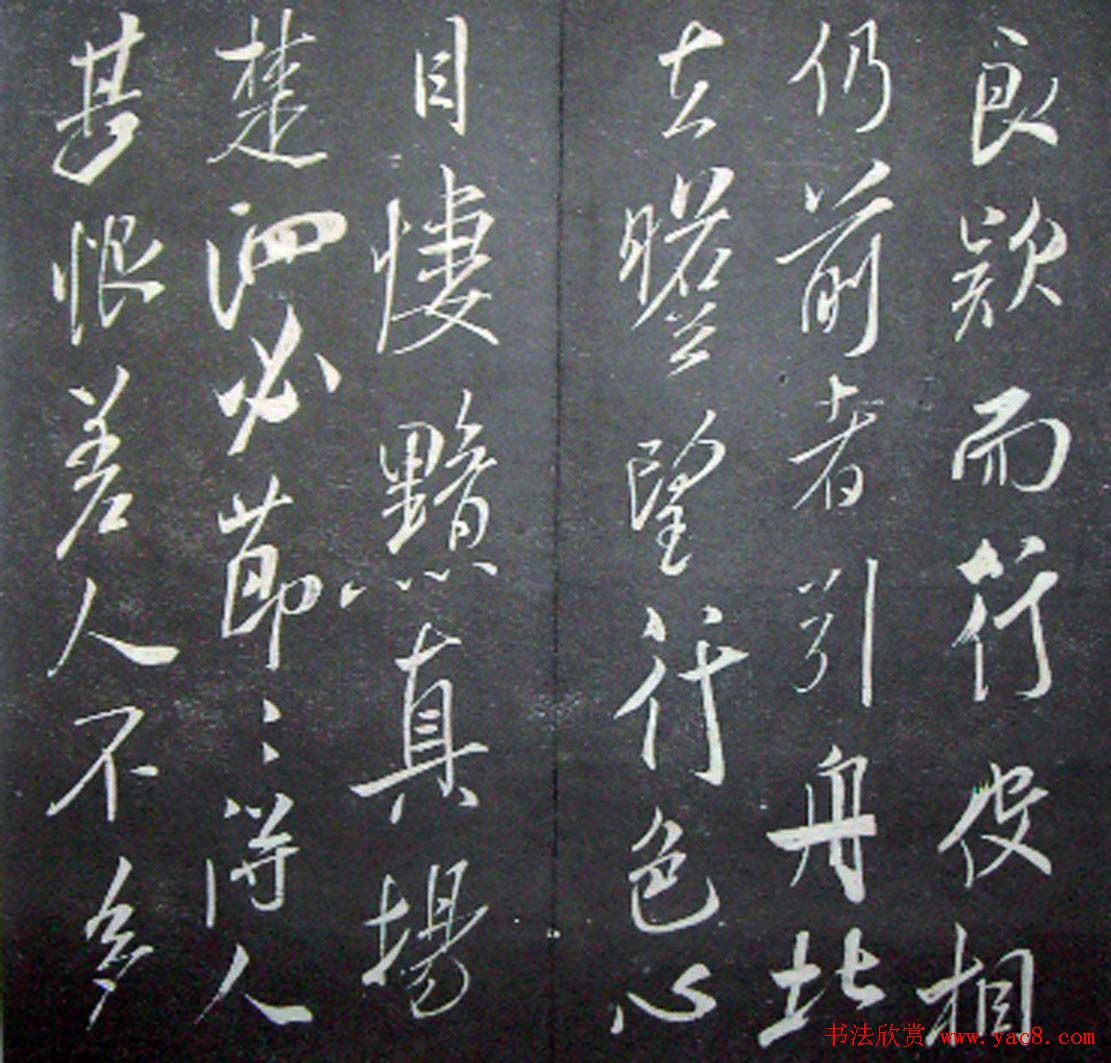 良欵而行役相
仍前者引舟北
去瞻望行色心
目悽黯真場
楚泗必莭〻得人
甚恨差人不多
书法欣赏 www.yac8.com